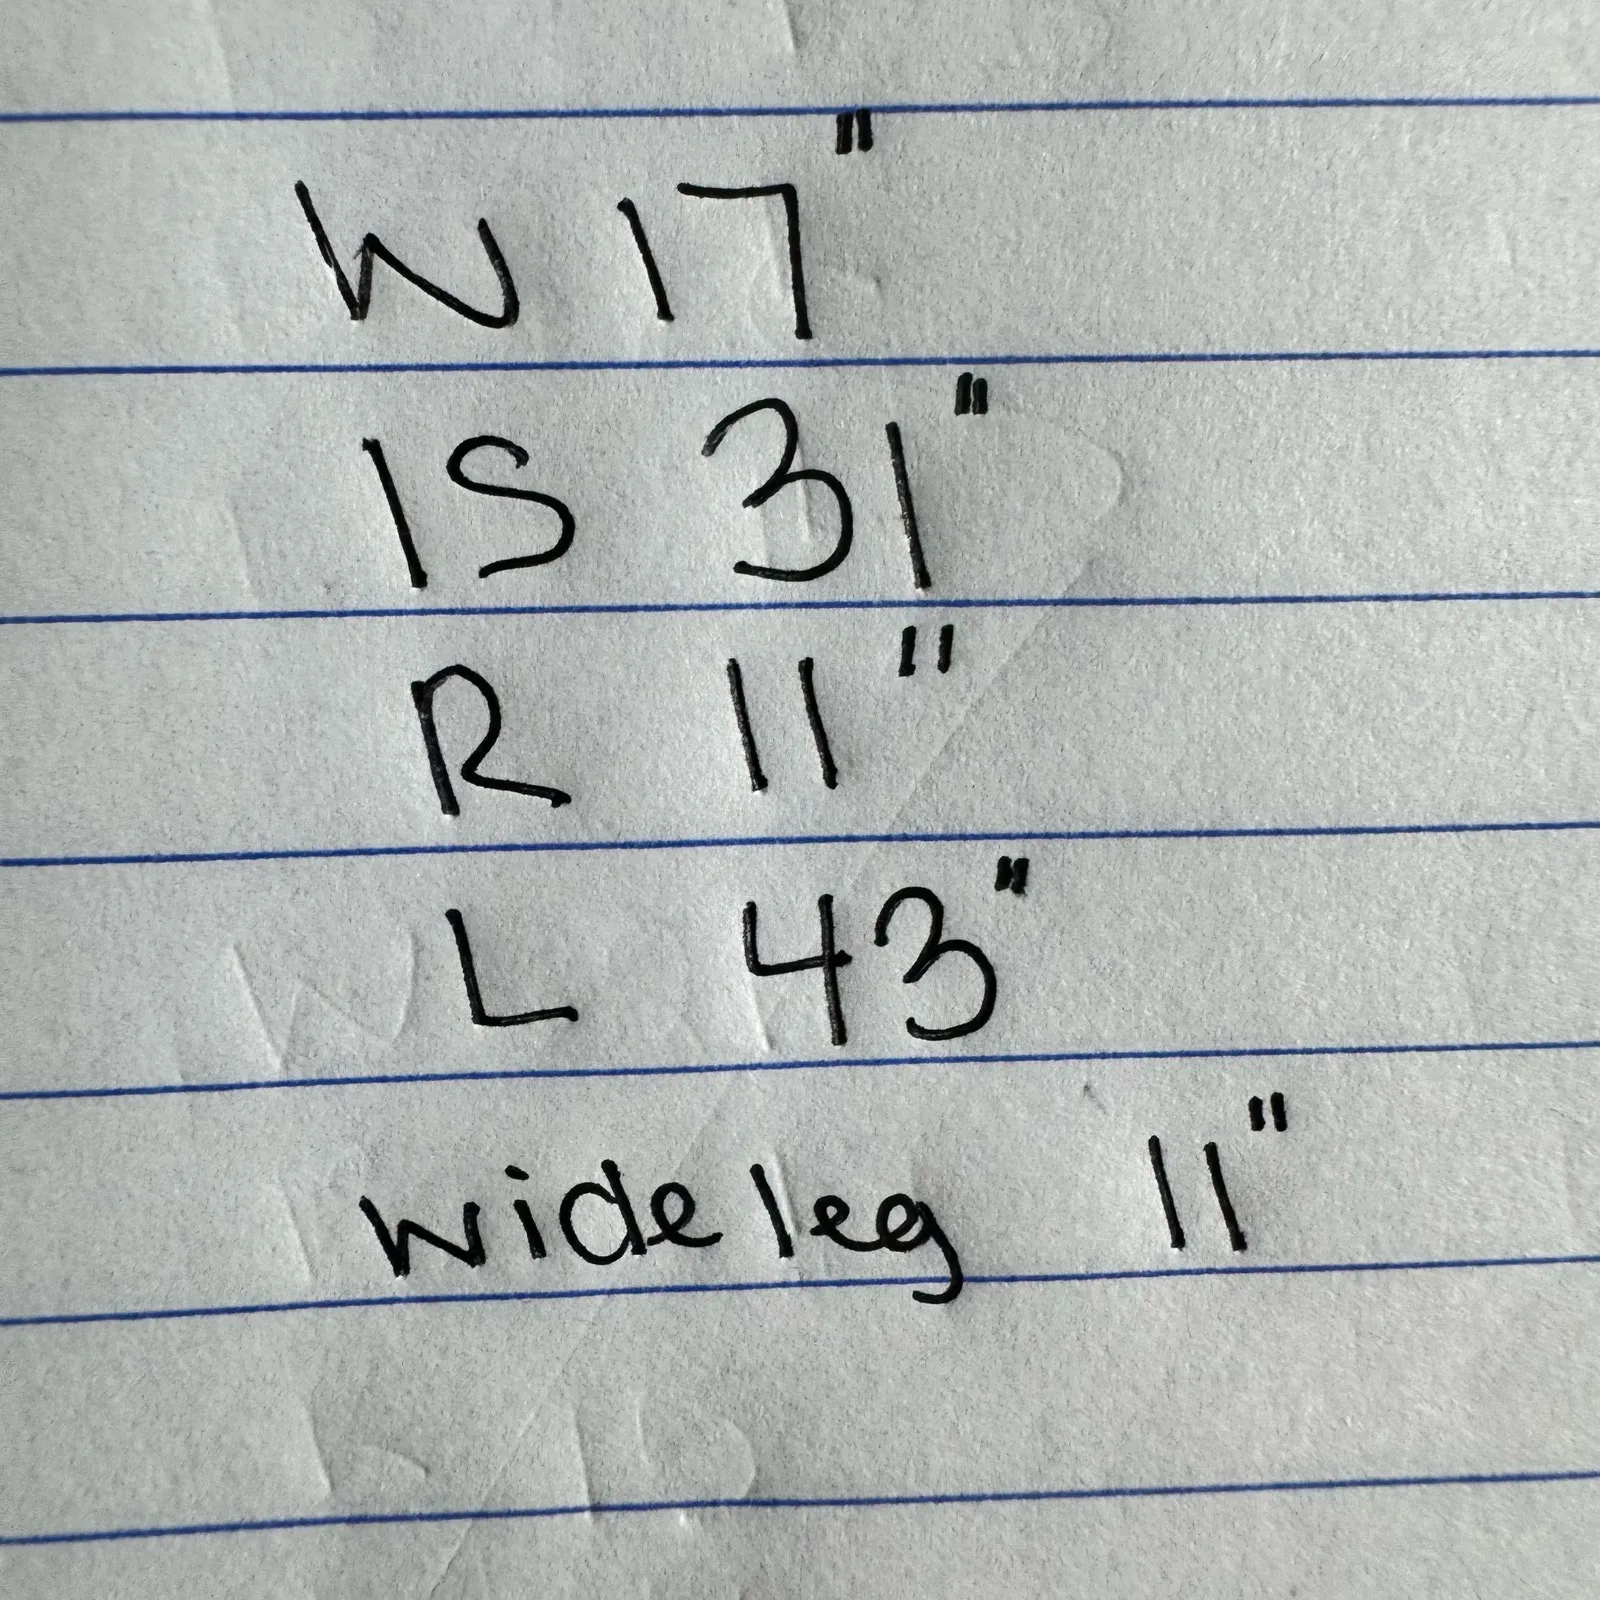 W 17"
IS 31"
R 11"
L 43"
wide leg 11"